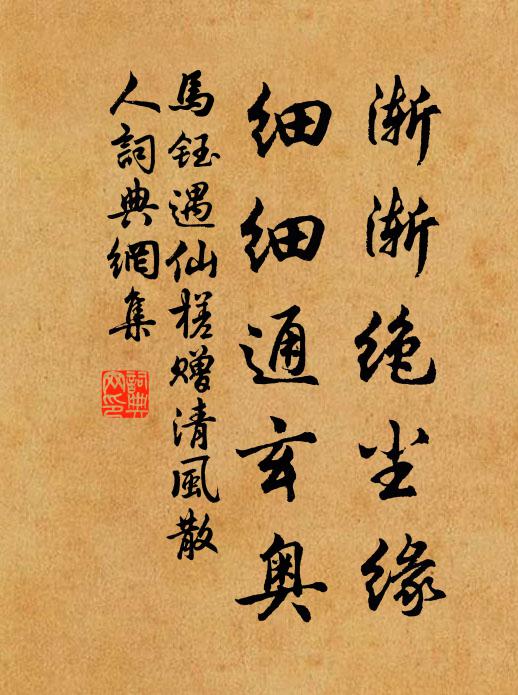 渐渐绝尘缘
细细通玄奥
馬鈺遇仙槎赠清風散
人詞典網集
詞典
网印